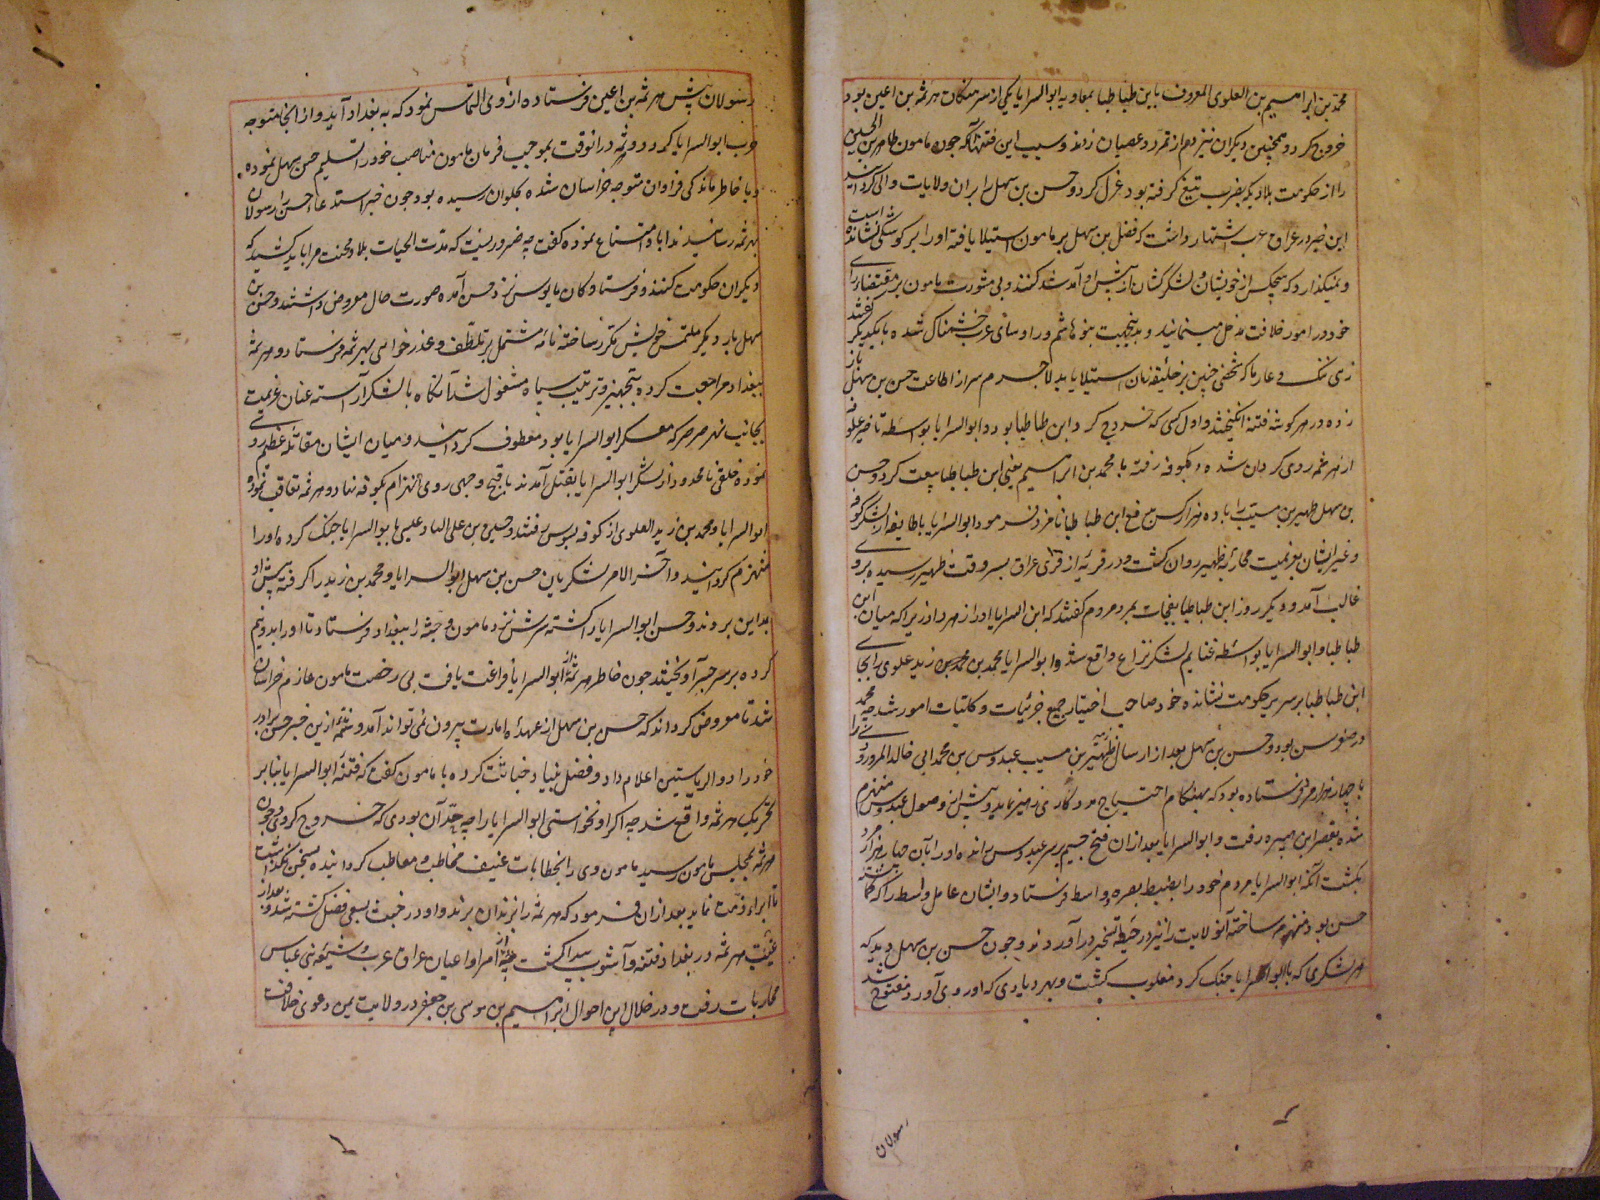 محمد بن ابراهیم بن العلوی المعروف بابن طباطبا بمعاونه ابوالسرایا یکی از سرهنگان هرثمه بن اعین بود
خروج کرد و همچنین دیگران نیز دم از تمرد و عصیان زدند و سبب این فتنها آنکه چون مامون طاهر بن الحسین
را از حکومت بلادیکه بضرب تیغ گرفته بود عزل کرد و حسن بن سهل را بران ولایات والی گردانید
این خبر در عراق عرب اشتهار داشت که فضل بن سهل بر مامون استیلا یافته و او را بر کوشکی نشانده است
و نمیگذارد که هیچکس از خویشان و لشکرکشان او پیش او آمد شد کنند و بی مشورت مامون بر مقتضاء رای
خود در امور خلافت مدخل مینماید و بدینجهت بنو هاشم و روسای عرب خشمناک شده با یکدیگر گفتند
زهی ننک و عار ما که شخصی چنین بر خلیفه زمان استیلا یابد لاجرم سر از اطاعت حسن بن سهل باز
زده در هر گوشه فتنه انگیختند و اول کسی که خروج کرد ابن طباطبا بود و ابوالسرایا بواسطه تاخیر علوفه
از هرثمه روی گردان شده و بکوفه رفته با محمد بن ابراهیم یعنی ابن طباطبا بیعت کرد و حسن
بن سهل ظهیر بن مسیب را با ده هزار کس بدفع ابن طباطبا نامزد فرمود ابوالسرایا با طایفه از لشکر کوفه
و غیر ایشان بعزیمت محاربه ظهیر روان گشت و در قریه از قرای عراق بسر وقت ظهیر رسیده بر وی
غالب آمد و دیگر روز ابن طباطبا بفجات بمرد مردم گفتند که ابن السرایا او را زهر داد زیرا که میان ابن
طباطبا و ابوالسرایا بواسطه غنایم لشکر نزاع واقع شد و ابوالسرایا محمد بن محمد بن زید علوی را بجای
ابن طباطبا بر سریر حکومت نشانده خود صاحب اختیار جمیع جزئیات و کلیات امور شد چه محمد
در صغر سن بود و حسن بن سهل بعد از ارسال ظهیر بن مسیب عبدوس بن محمد ابی خالد المروروذی را
با چهار هزار مرد فرستاده بود که بهنگام احتیاج مددکاری زهیر نماید و پیش از وصول عبدوس منهزم
شده بقصر ابن هبیره رفت و ابوالسرایا بعد از آن فتح جسیم بر سر عبدوس رانده او را با آن چهار هزار مرد
بکشت آنکه ابوالسرایا مردم خود را بضبط بصره و واسط فرستاد و ایشان عامل واسط را که گماشته
حسن بود منهزم ساخته آن ولایت را نیز در حیطه تسخیر درآوردند و چون حسن بن سهل دید که
هر لشکری که با ابوالسرایا جنک کرد مغلوب گشت و بهر دیاری که او روی آورد مفتوح شد
رسولان
رسولان پیش هرثمه بن اعین فرستاده از وی التماس نمود که به بغداد آید و از آنجا متوجه
حرب ابوالسرایا گردد و هرثمه در آنوقت بموجب فرمان مامون مناصب خود را تسلیم حسن سهل نموده
و با خاطر ماندگی فراوان متوجه خراسان شده بحلوان رسیده بود چون خبر استدعاء حسن را رسولان
بهرثمه رسانیدند ابا و امتناع نموده گفت چه ضروریست که مدت الحیات بلا و محنت مرا باید کشید که
دیگران حکومت کنند و فرستادگان مایوس نزد حسن آمده صورت حال معروض داشتند و حسن بن
سهل بار دیگر ملتمس خویش مکرر ساخته نامه مشتمل بر تلطف و عذر خواهی بهرثمه فرستاد و هرثمه
ببغداد مراجعت کرده بتجهیز و ترتیب سپاه مشغول شد آنگاه با لشکر آراسته عنان عزیمت
بجانب نهر صرصر که معسکر ابوالسرایا بود معطوف گردانید و میان ایشان مقاتله عظیم روی
نموده خلقی نامحدود از لشکر ابوالسرایا بقتل آمدند باقبح وجهی روی انهزام بکوفه نهاد و هرثمه تعاقب نموده
ابوالسرایا و محمد بن زید العلوی از کوفه بسوس رفتند و حسن بن علی المادعیسی با ابوالسرایا جنک کرده او را
منهزم گردانید و آخر الامر لشکریان حسن بن سهل ابوالسرایا و محمد بن زید را گرفته پیش او
بمداین بردند و حسن ابوالسرایا را کشته سرش نزد مامون و جثه را ببغداد فرستاد تا او را بدو نیم
کرده بر سر جسر آویختند چون خاطر هرثمه از ابوالسرایا فراغت یافت بی رخصت مامون عازم خراسان
شد تا معروض گرداند که حسن بن سهل از عهده امارت بیرون نمی تواند آمد و شمه ازین خبر حسن برادر
خود را ذوالریاستین اعلام داد و فضل بنیاد خباثت کرده با مامون گفت که فتنه ابوالسرایا بنابر
تحریک هرثمه واقع شد چه اگر او نخواستی ابوالسرایا را چه حد آن بودی که خروج کردی و چون
هرثمه بمجلس مامون رسید مامون وی را بخطابات عنیف مخاطب و معاتب گردانیده بسخن نگذاشت
تا ابراء ذمت نماید بعد از آن فرمود که هرثمه را بزندان برند و او در حبس بسعی فضل کشته شد و بعد از
غیبت هرثمه در بغداد فتنه و آشوب پیدا گشت میان امرا و اعیان عراق عرب و شیعه بنی عباس
محاربات رفت و در خلال این احوال ابراهیم بن موسی بن جعفر در ولایت یمن دعوی خلافت